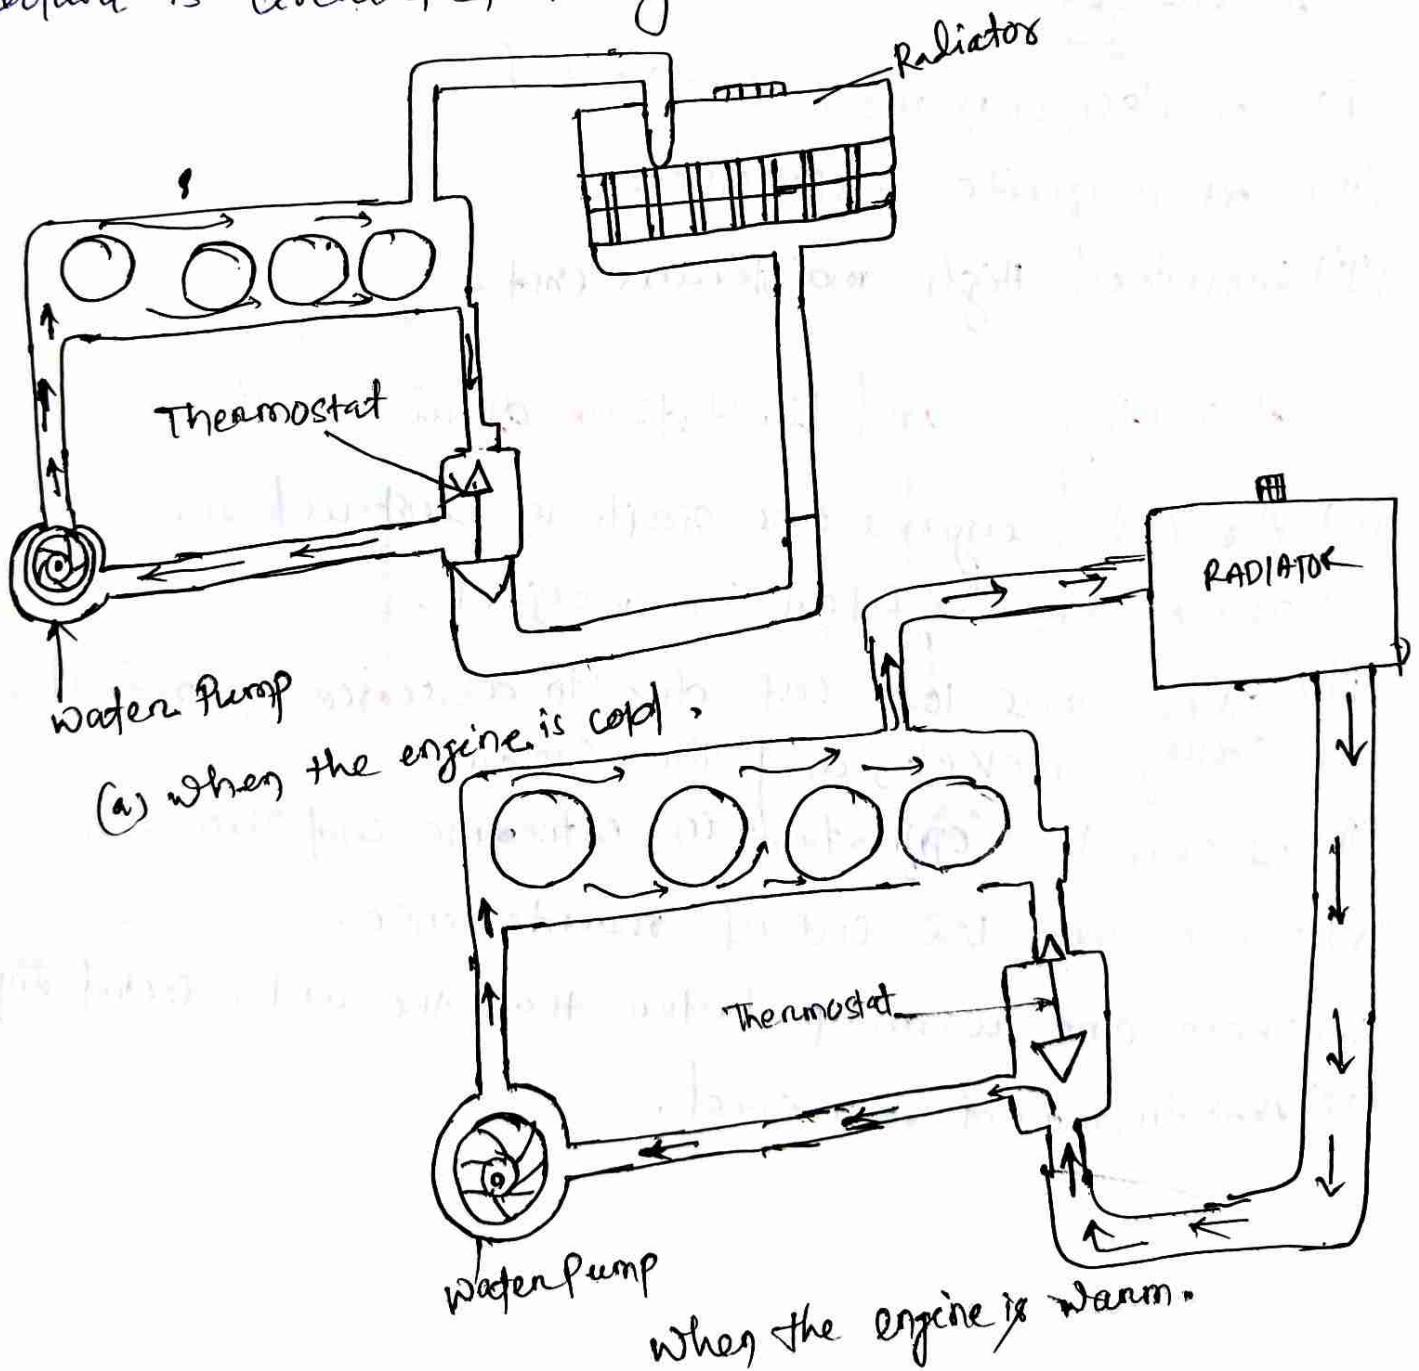 is
Radiator
Thermostat
Water Pump
(a) when the engine is cold.
RADIATOR
Thermostat
Water Pump
When the engine is warm.